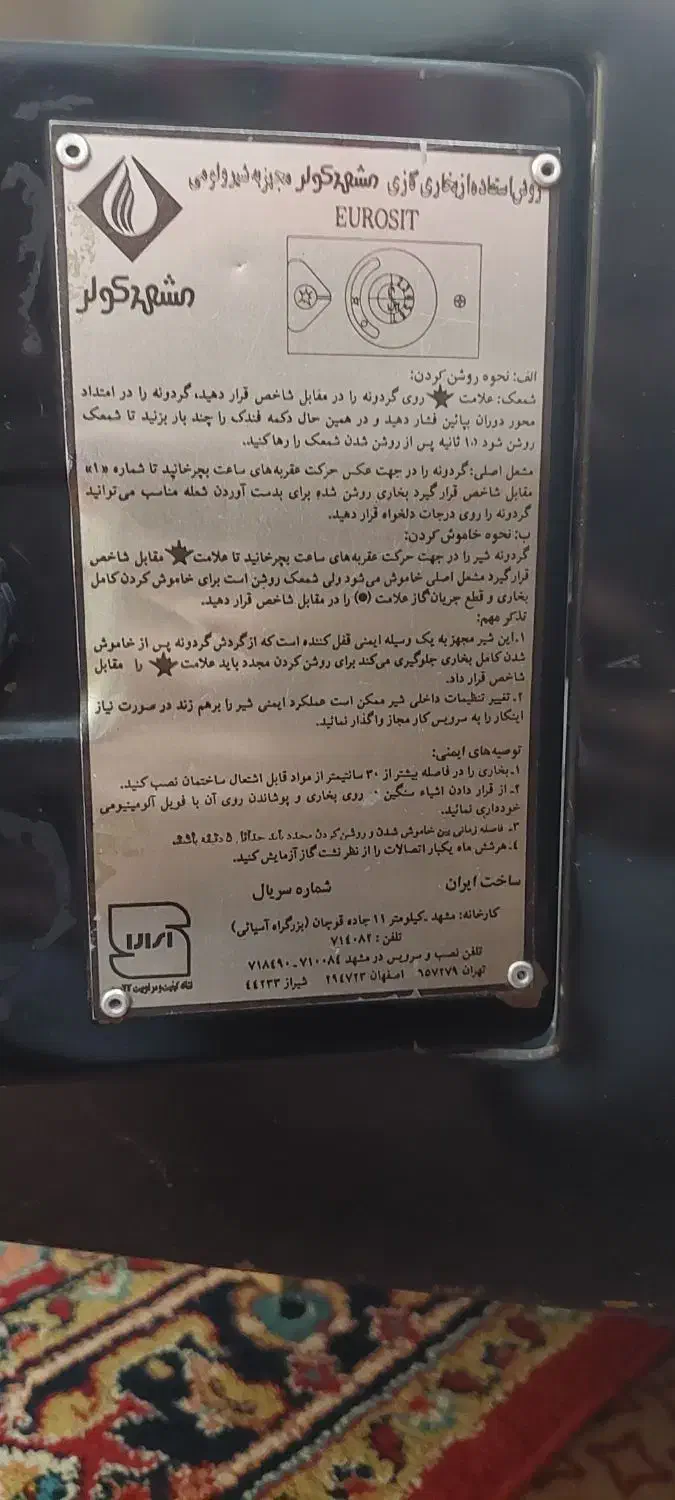 روش استفاده از بخاری گازی مشهد کولر مجهز به شیر ولومی
EUROSIT
مشهد کولر
الف: نحوه روشن کردن:
شمعک: علامت روی گردونه را در مقابل شاخص قرار دهید، گردونه را در امتداد
محور دوران بپائین فشار دهید و در همین حال دکمه فندک را چند بار بزنید تا شمعک
روشن شود ۱۰ ثانیه پس از روشن شدن شمعک را رها کنید.
مشعل اصلی: گردونه را در جهت عکس حرکت عقربه‌های ساعت بچرخانید تا شماره «۱»
مقابل شاخص قرار گیرد بخاری روشن شده برای بدست آوردن شعله مناسب می‌توانید
گردونه را روی درجات دلخواه قرار دهید.
ب: نحوه خاموش کردن:
گردونه شیر را در جهت حرکت عقربه‌های ساعت بچرخانید تا علامت مقابل شاخص
قرار گیرد مشعل اصلی خاموش می‌شود ولی شمعک روشن است برای خاموش کردن کامل
بخاری و قطع جریان گاز علامت (●) را در مقابل شاخص قرار دهید.
تذکر مهم:
۱ـ این شیر مجهز به یک وسیله ایمنی قفل کننده است که از گردش گردونه پس از خاموش
شدن کامل بخاری جلوگیری می‌کند برای روشن کردن مجدد باید علامت را مقابل
شاخص قرار داد.
۲ـ تغییر تنظیمات داخلی شیر ممکن است عملکرد ایمنی شیر را برهم زند در صورت نیاز
اینکار را به سرویس کار مجاز واگذار نمائید.
توصیه‌های ایمنی:
۱ـ بخاری را در فاصله بیشتر از ۳۰ سانتیمتر از مواد قابل اشتعال ساختمان نصب کنید.
۲ـ از قرار دادن اشیاء سنگین روی بخاری و پوشاندن روی آن با فویل آلومینیومی
خودداری نمائید.
۳ـ فاصله زمانی بین خاموش شدن و روشن کردن مجدد باید حداقل ۵ دقیقه باشد.
۴ـ هر شش ماه یکبار اتصالات را از نظر نشت گاز آزمایش کنید.
ساخت ایران شماره سریال
کارخانه: مشهد ـ کیلومتر ۱۱ جاده قوچان (بزرگراه آسیائی)
تلفن: ۷۱۴۰۸۲
تلفن نصب و سرویس در مشهد ۷۱۰۰۸۴ ـ ۷۱۸۴۹۰
تهران ۶۵۷۲۷۹ اصفهان ۲۹۴۷۲۳ شیراز ۴۴۲۳۳